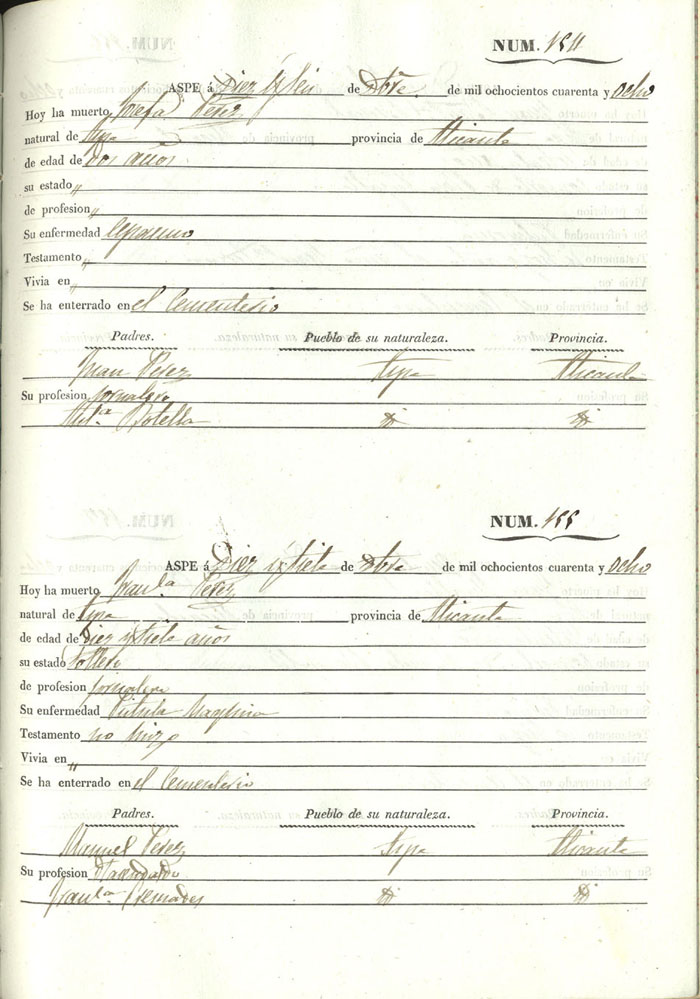 NUM. 154
ASPE á Diez y seis de Stbre. de mil ochocientos cuarenta y ocho
Hoy ha muerto Josefa Perez
natural de Aspe provincia de Alicante
de edad de dos años
su estado „
de profesion „
Su enfermedad Espasmo
Testamento „
Vivia en „
Se ha enterrado en el Cementerio
Padres. Pueblo de su naturaleza. Provincia.
Juan Perez Aspe Alicante
Su profesion jornalero
Botella id id
NUM. 155
ASPE á Diez y siete de de mil ochocientos cuarenta y ocho
Hoy ha muerto Perez
natural de Aspe provincia de Alicante
de edad de Diez y siete años
su estado
de profesion jornalero
Su enfermedad Pustula Maligna
Testamento no hizo
Vivia en „
Se ha enterrado en el Cementerio
Padres. Pueblo de su naturaleza. Provincia.
Manuel Perez Aspe Alicante
Su profesion Hacendado
id id